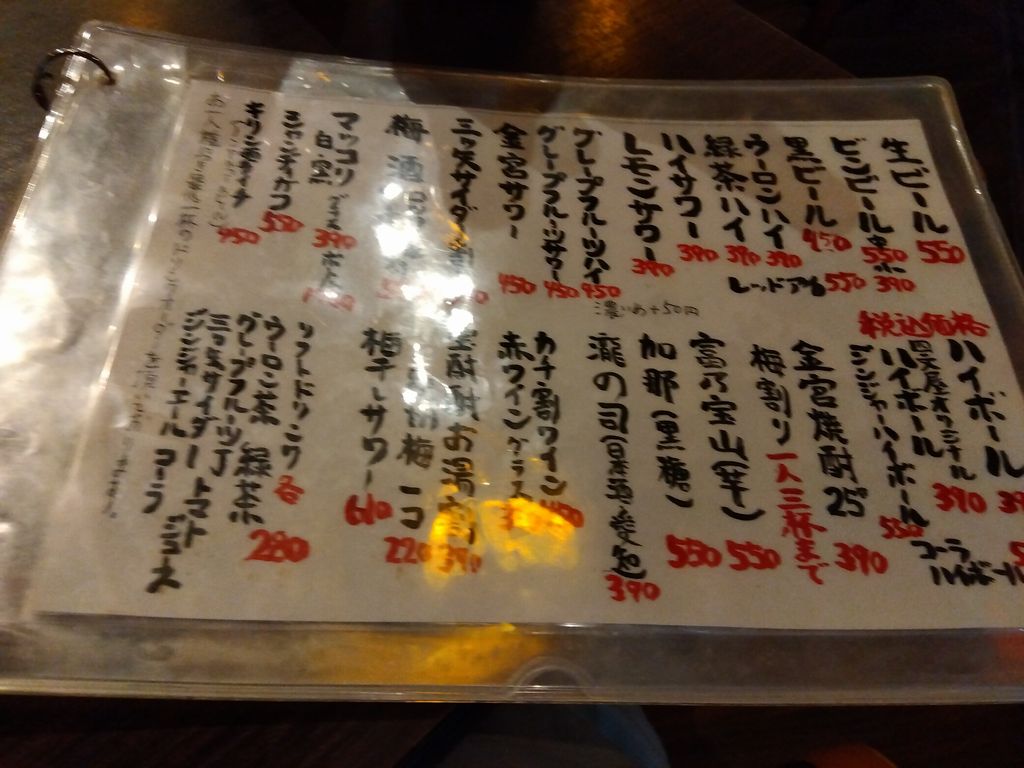 生ビール 550
ビンビール 中 550 小 390
黒ビール 450
レッドアイ 550
ウーロンハイ 390
緑茶ハイ 390
ハイサワー 390
レモンサワー 390
グレープフルーツハイ 450
グレープフルーツサワー 450
金宮サワー 450
濃いめ+50円
三ツ矢サイダー割
梅酒
マッコリ
白・黒 グラス 390 ボトル
シャンディガフ 550
450
税込価格
ハイボール
オリジナル
ハイボール 390
ジンジャーハイボール 550
コーラ
ハイボール
金宮焼酎25° 390
梅割り 一人三杯まで
富乃宝山(芋) 550
加那(黒糖) 550
瀧の司(日本酒) 390
カチ割ワイン
赤ワイングラス
焼酎お湯割り 390
梅 一コ 220
梅干しサワー 610
ソフトドリンク 各 280
ウーロン茶 緑茶
グレープフルーツJ
三ツ矢サイダー トマトジュース
ジンジャーエール コーラ